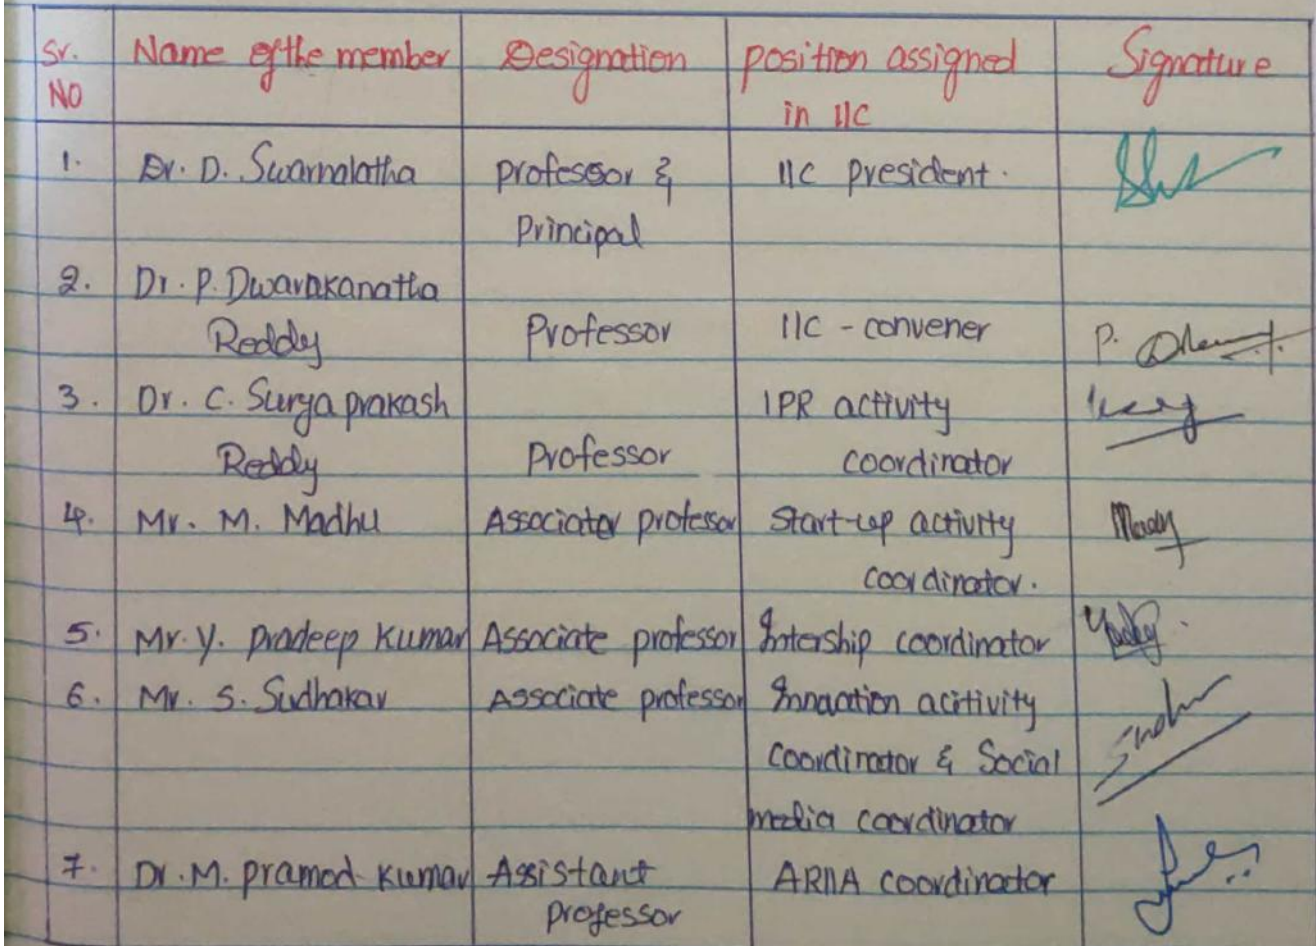 Sr. Name of the member Designation position assigned Signature
NO in IIC
1. Dr. D. Swarnalatha professor & IIC president.
Principal
2. Dr. P. Dwarakanatha
Reddy Professor IIC - convener P.
3. Dr. C. Surya prakash IPR activity
Reddy Professor coordinator
4. Mr. M. Madhu Associator professor Start-up activity
coordinator.
5. Mr. Y. pradeep Kumar Associate professor Intership coordinator
6. Mr. S. Sudhakar Associate professor Innavation acitivity
coordinator & Social
media coordinator
7. Dr. M. pramod Kumar Assistant ARIIA coordinator
professor